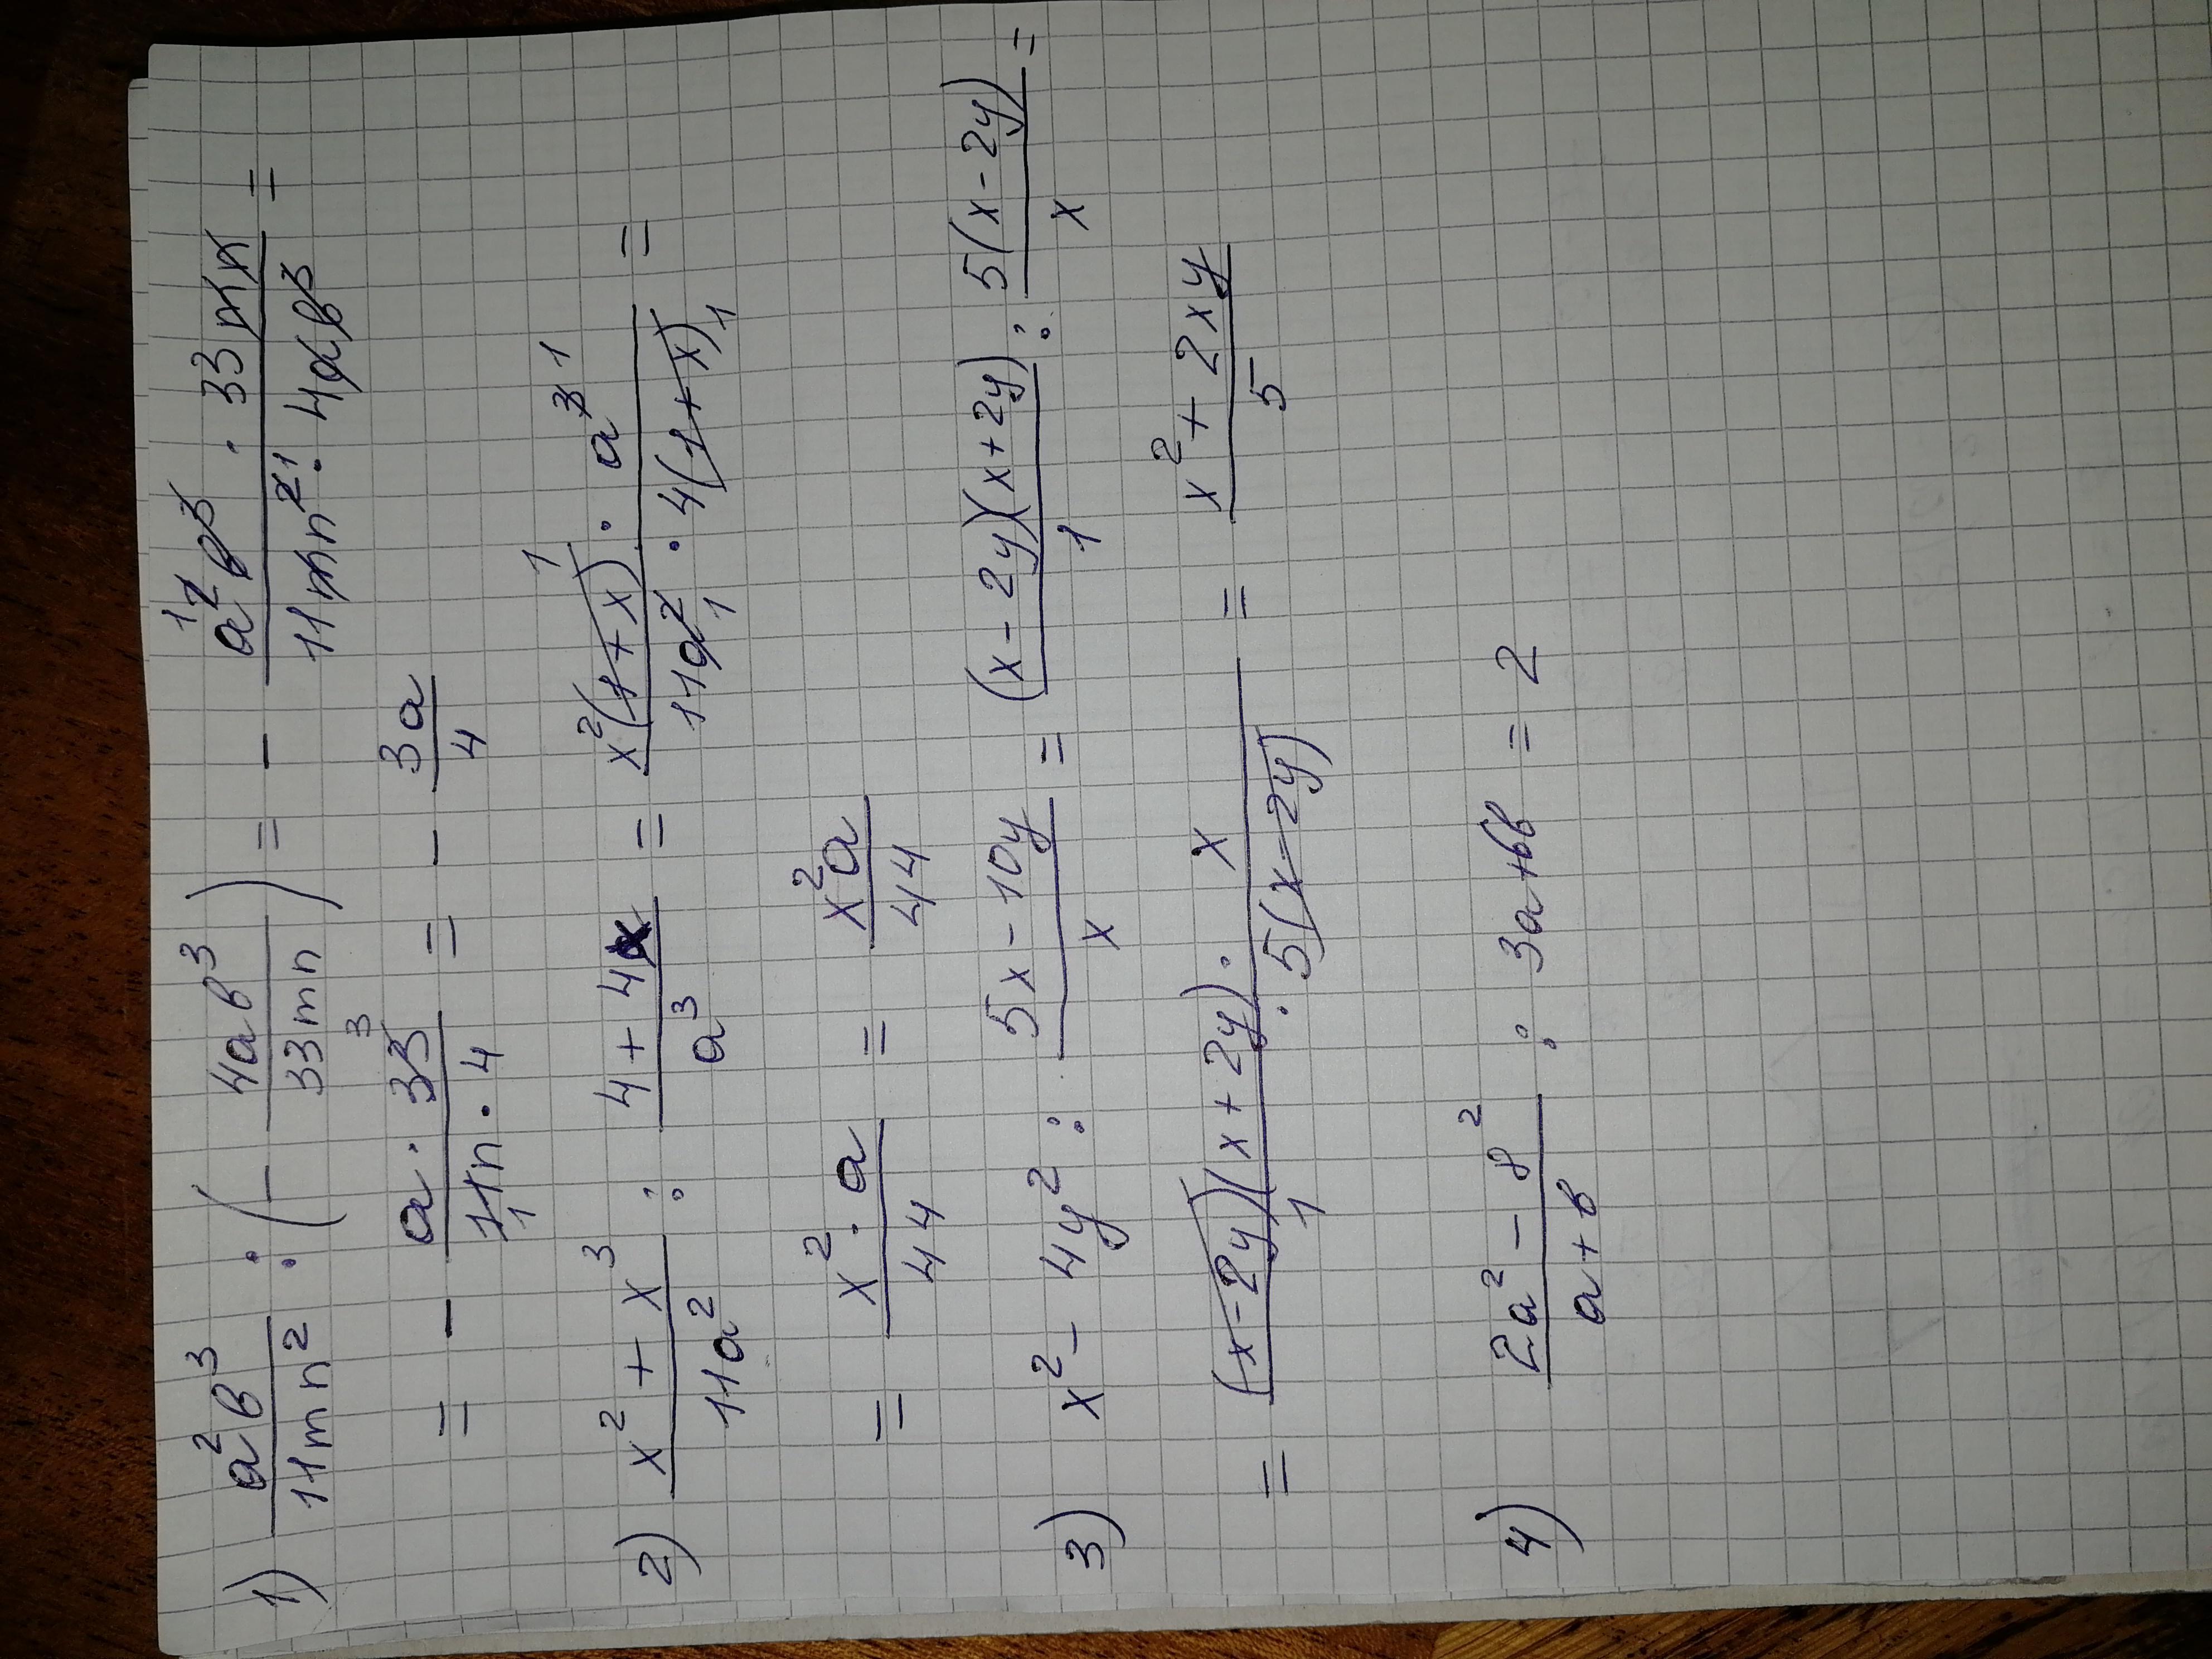 1) a²b³/11mn² : (− 4ab³/33mn) = − a²b³ · 33mn/11mn² · 4ab³ =
= − a · 33/11n · 4 = − 3a/4
2) x² + x³/11a² : 4 + 4x/a³ = x²(1+x) · a³/11a² · 4(1+x) =
= x² · a/44 = x²a/44
3) x² − 4y² : 5x − 10y/x = (x − 2y)(x + 2y)/1 : 5(x − 2y)/x =
= (x − 2y)(x + 2y) · x/1 · 5(x − 2y) = x² + 2xy/5
4) 2a² − 8²/a + b : 3a+6b = 2